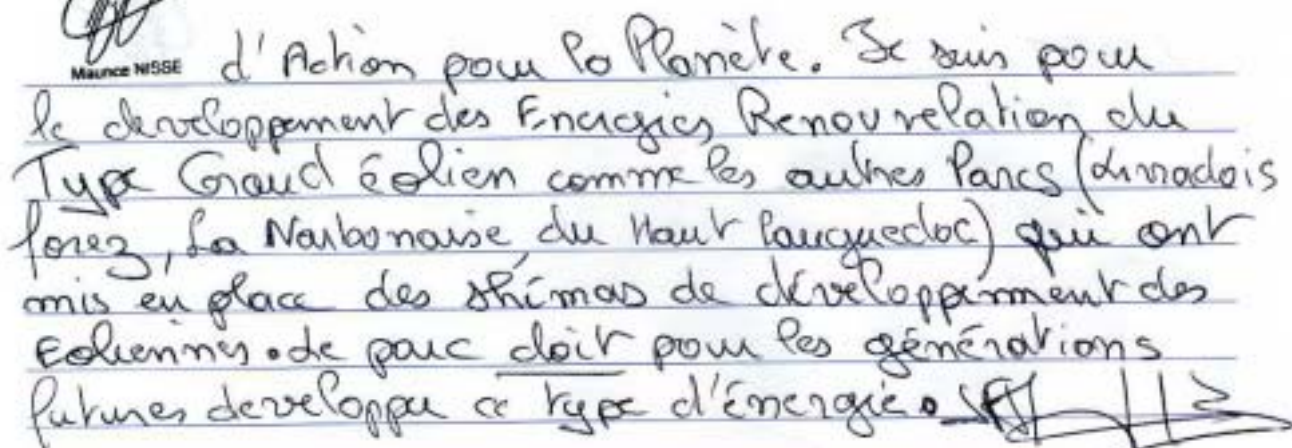 Maurice NISSE
d'Action pour la Planète. Je suis pour
le developpement des Energies Renouvelation du
Type Grand éolien comme les autres Parcs (Livradois
forez, La Narbonaise, du Haut languedoc) qui ont
mis en place des shémas de développement des
Eoliennes. Le parc doit pour les générations
futures developper ce type d'énergie.